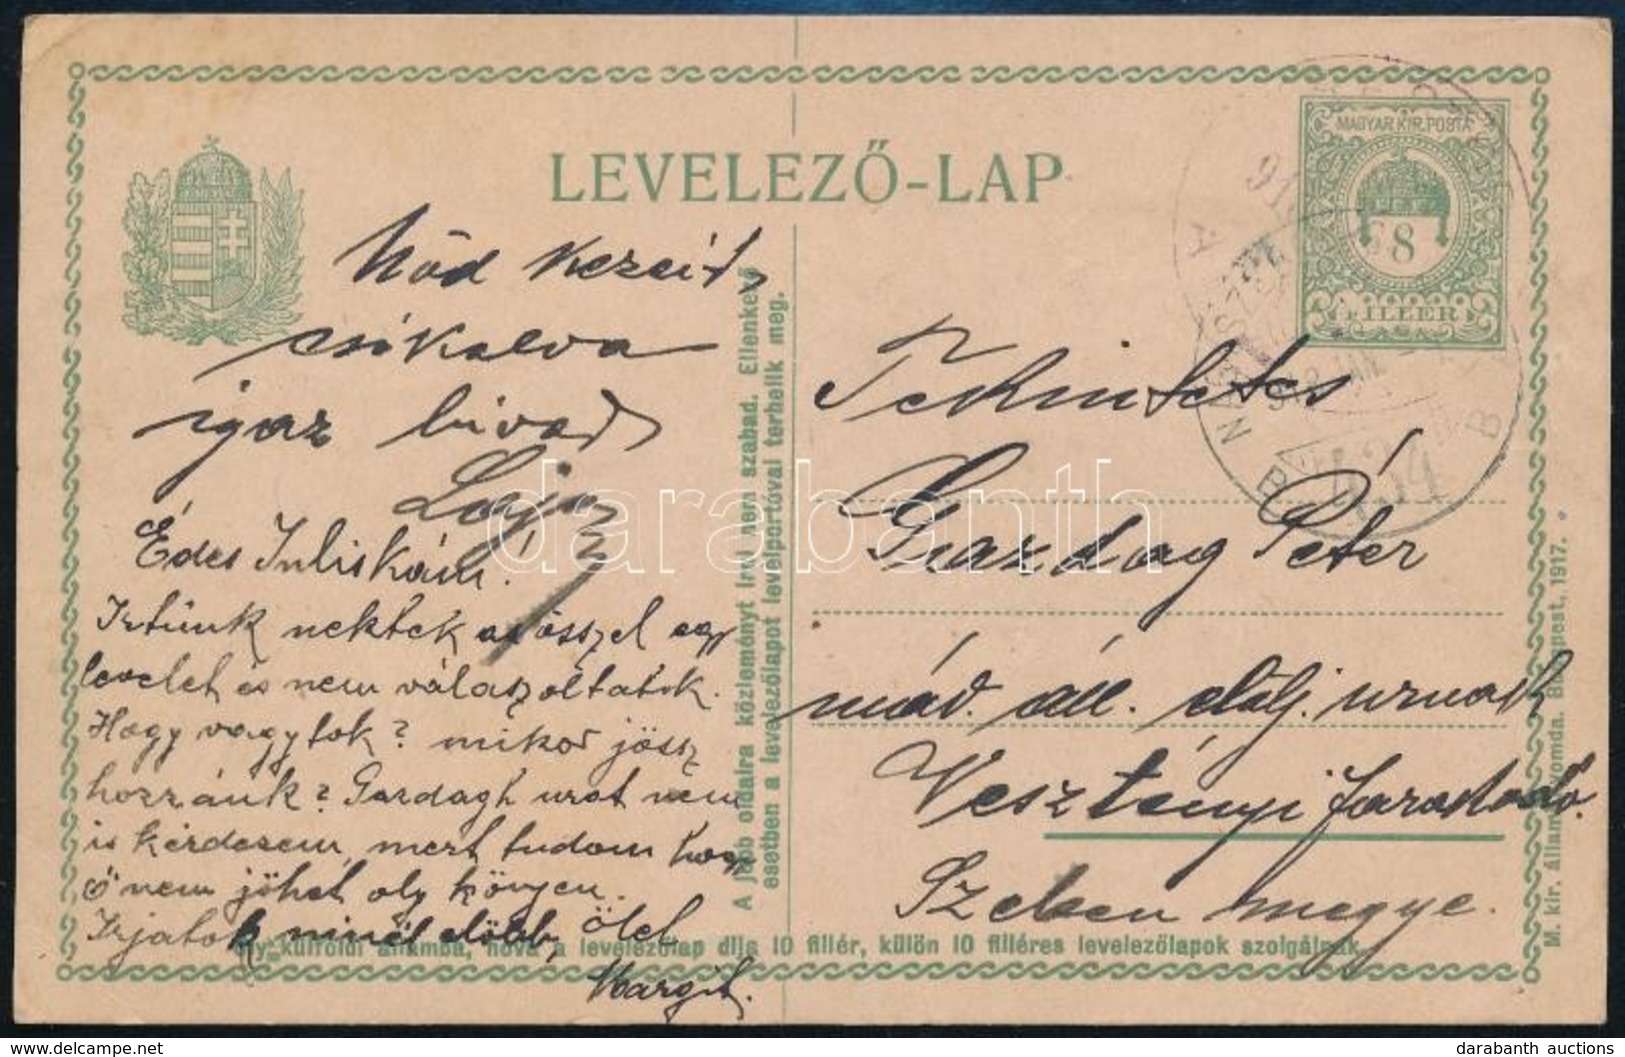 LEVELEZŐ-LAP
MAGYAR KIR. POSTA
8
FILLÉR
Nőd kezeit
csókolva
igaz hived
Lajos
Édes Juliskám!
Irtunk nektek az ősszel egy
levelet és nem válaszoltatok.
Hogy vagytok? mikor jössz
hozzánk? Gazdagh urat nem
is kérdezem, mert tudom hogy
ő nem jöhet oly könyen.
Irjatok minél előbb, ölel
Margit.
A jobb oldalra közleményt irni nem szabad. Ellenkező
esetben a levelezőlapot levélportóval terhelik meg.
Tekintetes
Gazdag Péter
máv. áll. elölj. urnak
Vesztényi farakodó.
Szeben megye.
külföldi államba, hová a levelezőlap díja 10 fillér, külön 10 filléres levelezőlapok szolgálnak.
M. kir. államnyomda. Budapest, 1917.
darabanth
darabanth auctions
www.delcampe.net